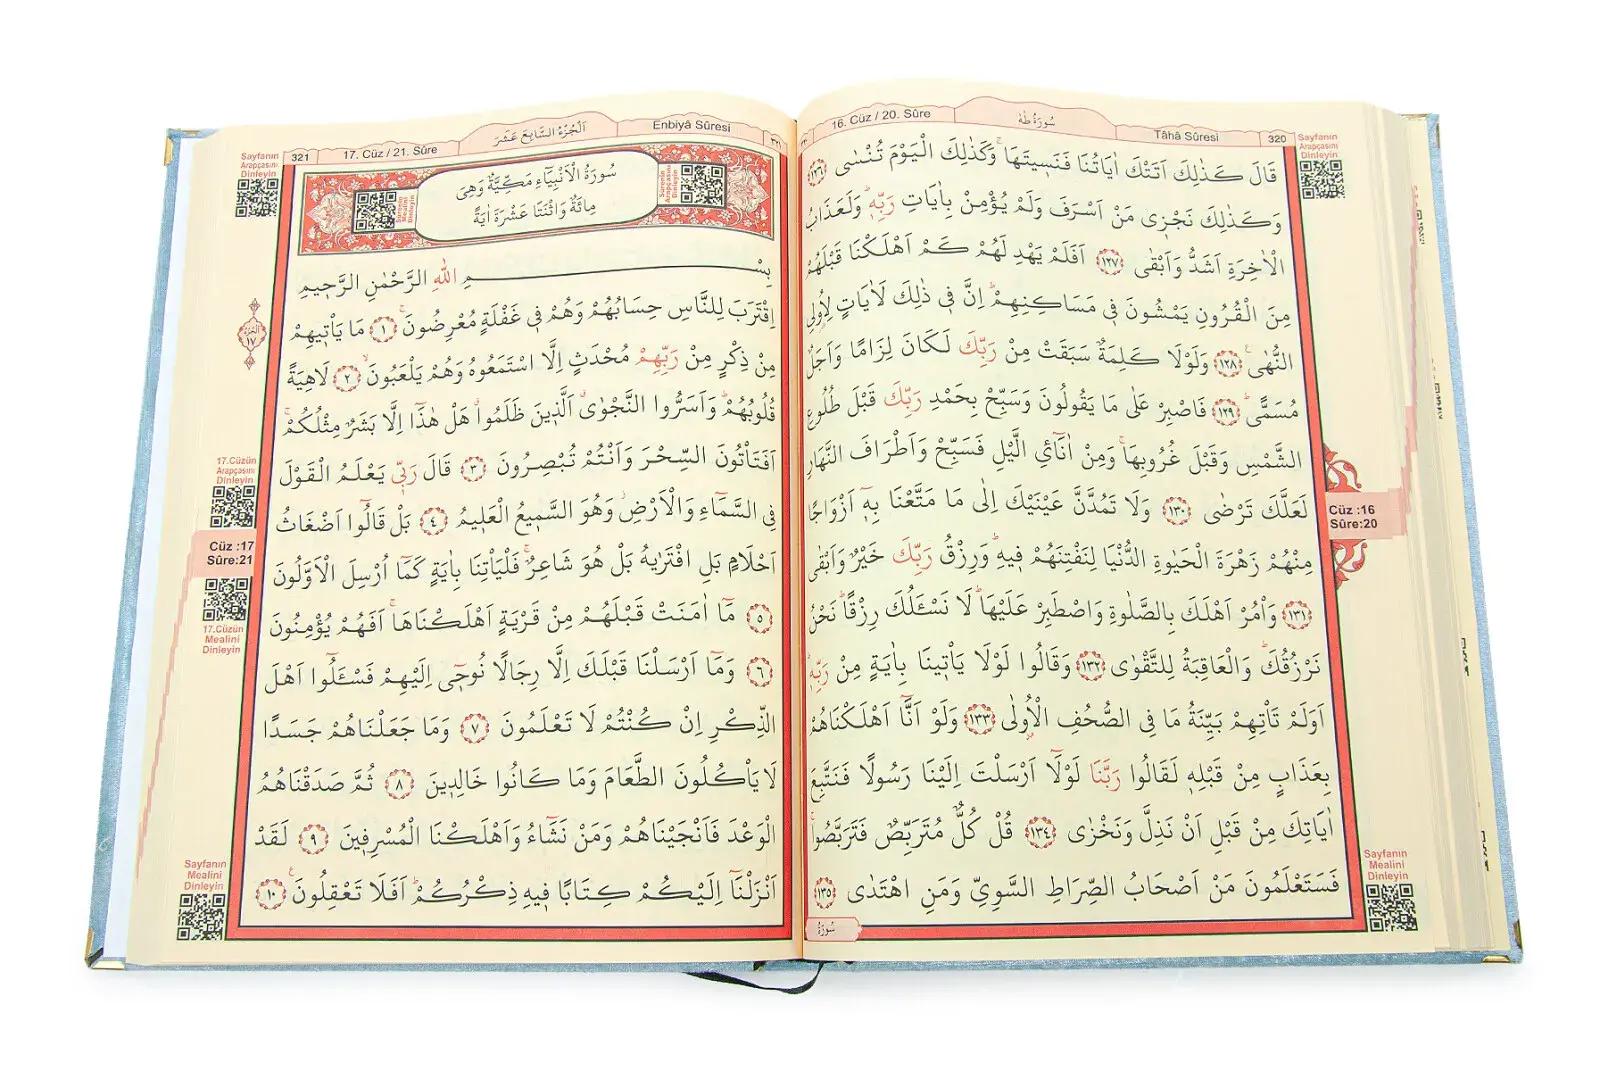 16. Cüz / 20. Sûre
سُورَةُ طٰهٰ
Tâhâ Sûresi
320
قَالَ كَذٰلِكَ اَتَتْكَ اٰيَاتُنَا فَنَس۪يتَهَاۚ وَكَذٰلِكَ الْيَوْمَ تُنْسٰى ﴿١٢٦﴾
وَكَذٰلِكَ نَجْز۪ى مَنْ اَسْرَفَ وَلَمْ يُؤْمِنْ بِاٰيَاتِ رَبِّه۪ۜ وَلَعَذَابُ
الْاٰخِرَةِ اَشَدُّ وَاَبْقٰى ﴿١٢٧﴾ اَفَلَمْ يَهْدِ لَهُمْ كَمْ اَهْلَكْنَا قَبْلَهُمْ
مِنَ الْقُرُونِ يَمْشُونَ ف۪ى مَسَاكِنِهِمْۜ اِنَّ ف۪ى ذٰلِكَ لَاٰيَاتٍ لِاُو۬لِى
النُّهٰى۟ ﴿١٢٨﴾ وَلَوْلَا كَلِمَةٌ سَبَقَتْ مِنْ رَبِّكَ لَكَانَ لِزَامًا وَاَجَلٌ
مُسَمًّىۜ ﴿١٢٩﴾ فَاصْبِرْ عَلٰى مَا يَقُولُونَ وَسَبِّحْ بِحَمْدِ رَبِّكَ قَبْلَ طُلُوعِ
الشَّمْسِ وَقَبْلَ غُرُوبِهَاۚ وَمِنْ اٰنَٓائِ الَّيْلِ فَسَبِّحْ وَاَطْرَافَ النَّهَارِ
لَعَلَّكَ تَرْضٰى ﴿١٣٠﴾ وَلَا تَمُدَّنَّ عَيْنَيْكَ اِلٰى مَا مَتَّعْنَا بِه۪ٓ اَزْوَاجًا
مِنْهُمْ زَهْرَةَ الْحَيٰوةِ الدُّنْيَا لِنَفْتِنَهُمْ ف۪يهِۜ وَرِزْقُ رَبِّكَ خَيْرٌ وَاَبْقٰى
﴿١٣١﴾ وَأْمُرْ اَهْلَكَ بِالصَّلٰوةِ وَاصْطَبِرْ عَلَيْهَاۜ لَا نَسْـَٔلُكَ رِزْقًاۜ نَحْنُ
نَرْزُقُكَۜ وَالْعَاقِبَةُ لِلتَّقْوٰى ﴿١٣٢﴾ وَقَالُوا لَوْلَا يَأْت۪ينَا بِاٰيَةٍ مِنْ رَبِّه۪ۜ
اَوَلَمْ تَأْتِهِمْ بَيِّنَةُ مَا فِى الصُّحُفِ الْاُو۫لٰى ﴿١٣٣﴾ وَلَوْ اَنَّٓا اَهْلَكْنَاهُمْ
بِعَذَابٍ مِنْ قَبْلِه۪ لَقَالُوا رَبَّنَا لَوْلَٓا اَرْسَلْتَ اِلَيْنَا رَسُولًا فَنَتَّبِعَ
اٰيَاتِكَ مِنْ قَبْلِ اَنْ نَذِلَّ وَنَخْزٰى ﴿١٣٤﴾ قُلْ كُلٌّ مُتَرَبِّصٌ فَتَرَبَّصُواۚ
فَسَتَعْلَمُونَ مَنْ اَصْحَابُ الصِّرَاطِ السَّوِيِّ وَمَنِ اهْتَدٰى ﴿١٣٥﴾
سُورَةُ
Sayfanın
Arapçasını
Dinleyin
Cüz :16
Sûre:20
Sayfanın
Mealini
Dinleyin
321
17. Cüz / 21. Sûre
اَلْجُزْءُ السَّابِعَ عَشَرَ
Enbiyâ Sûresi
سُورَةُ الْاَنْبِيَاءِ مَكِّيَّةٌ وَهِىَ
مِائَةٌ وَاثْنَتَا عَشْرَةَ اٰيَةً
بِسْمِ اللّٰهِ الرَّحْمٰنِ الرَّح۪يمِ
اِقْتَرَبَ لِلنَّاسِ حِسَابُهُمْ وَهُمْ ف۪ى غَفْلَةٍ مُعْرِضُونَۚ ﴿١﴾ مَا يَأْت۪يهِمْ
مِنْ ذِكْرٍ مِنْ رَبِّهِمْ مُحْدَثٍ اِلَّا اسْتَمَعُوهُ وَهُمْ يَلْعَبُونَۙ ﴿٢﴾ لَاهِيَةً
قُلُوبُهُمْۜ وَاَسَرُّوا النَّجْوٰىۗ اَلَّذ۪ينَ ظَلَمُواۗ هَلْ هٰذَٓا اِلَّا بَشَرٌ مِثْلُكُمْۚ
اَفَتَأْتُونَ السِّحْرَ وَاَنْتُمْ تُبْصِرُونَ ﴿٣﴾ قَالَ رَبّ۪ى يَعْلَمُ الْقَوْلَ
فِى السَّمَٓاءِ وَالْاَرْضِۘ وَهُوَ السَّم۪يعُ الْعَل۪يمُ ﴿٤﴾ بَلْ قَالُٓوا اَضْغَاثُ
اَحْلَامٍ بَلِ افْتَرٰيهُ بَلْ هُوَ شَاعِرٌۚ فَلْيَأْتِنَا بِاٰيَةٍ كَمَٓا اُرْسِلَ الْاَوَّلُونَ
﴿٥﴾ مَٓا اٰمَنَتْ قَبْلَهُمْ مِنْ قَرْيَةٍ اَهْلَكْنَاهَاۚ اَفَهُمْ يُؤْمِنُونَ
﴿٦﴾ وَمَٓا اَرْسَلْنَا قَبْلَكَ اِلَّا رِجَالًا نُوح۪ٓى اِلَيْهِمْ فَسْـَٔلُٓوا اَهْلَ
الذِّكْرِ اِنْ كُنْتُمْ لَا تَعْلَمُونَ ﴿٧﴾ وَمَا جَعَلْنَاهُمْ جَسَدًا
لَا يَأْكُلُونَ الطَّعَامَ وَمَا كَانُوا خَالِد۪ينَ ﴿٨﴾ ثُمَّ صَدَقْنَاهُمُ
الْوَعْدَ فَاَنْجَيْنَاهُمْ وَمَنْ نَشَٓاءُ وَاَهْلَكْنَا الْمُسْرِف۪ينَ ﴿٩﴾ لَقَدْ
اَنْزَلْنَٓا اِلَيْكُمْ كِتَابًا ف۪يهِ ذِكْرُكُمْۜ اَفَلَا تَعْقِلُونَ۟ ﴿١٠﴾
Sayfanın
Arapçasını
Dinleyin
الجزء
١٧
17.Cüzün
Arapçasını
Dinleyin
Cüz :17
Sûre:21
17.Cüzün
Mealini
Dinleyin
Sayfanın
Mealini
Dinleyin